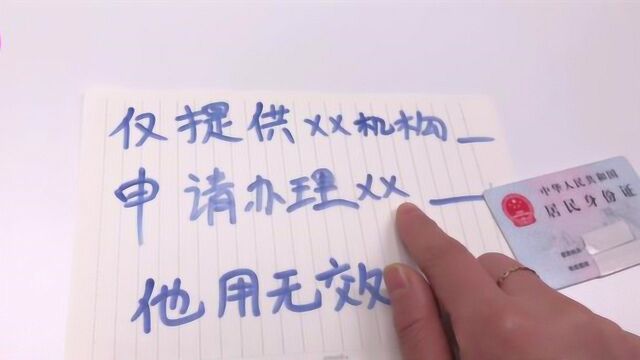 仅提供xx机构_
申请办理xx_
他用无效
中华人民共和国
居民身份证